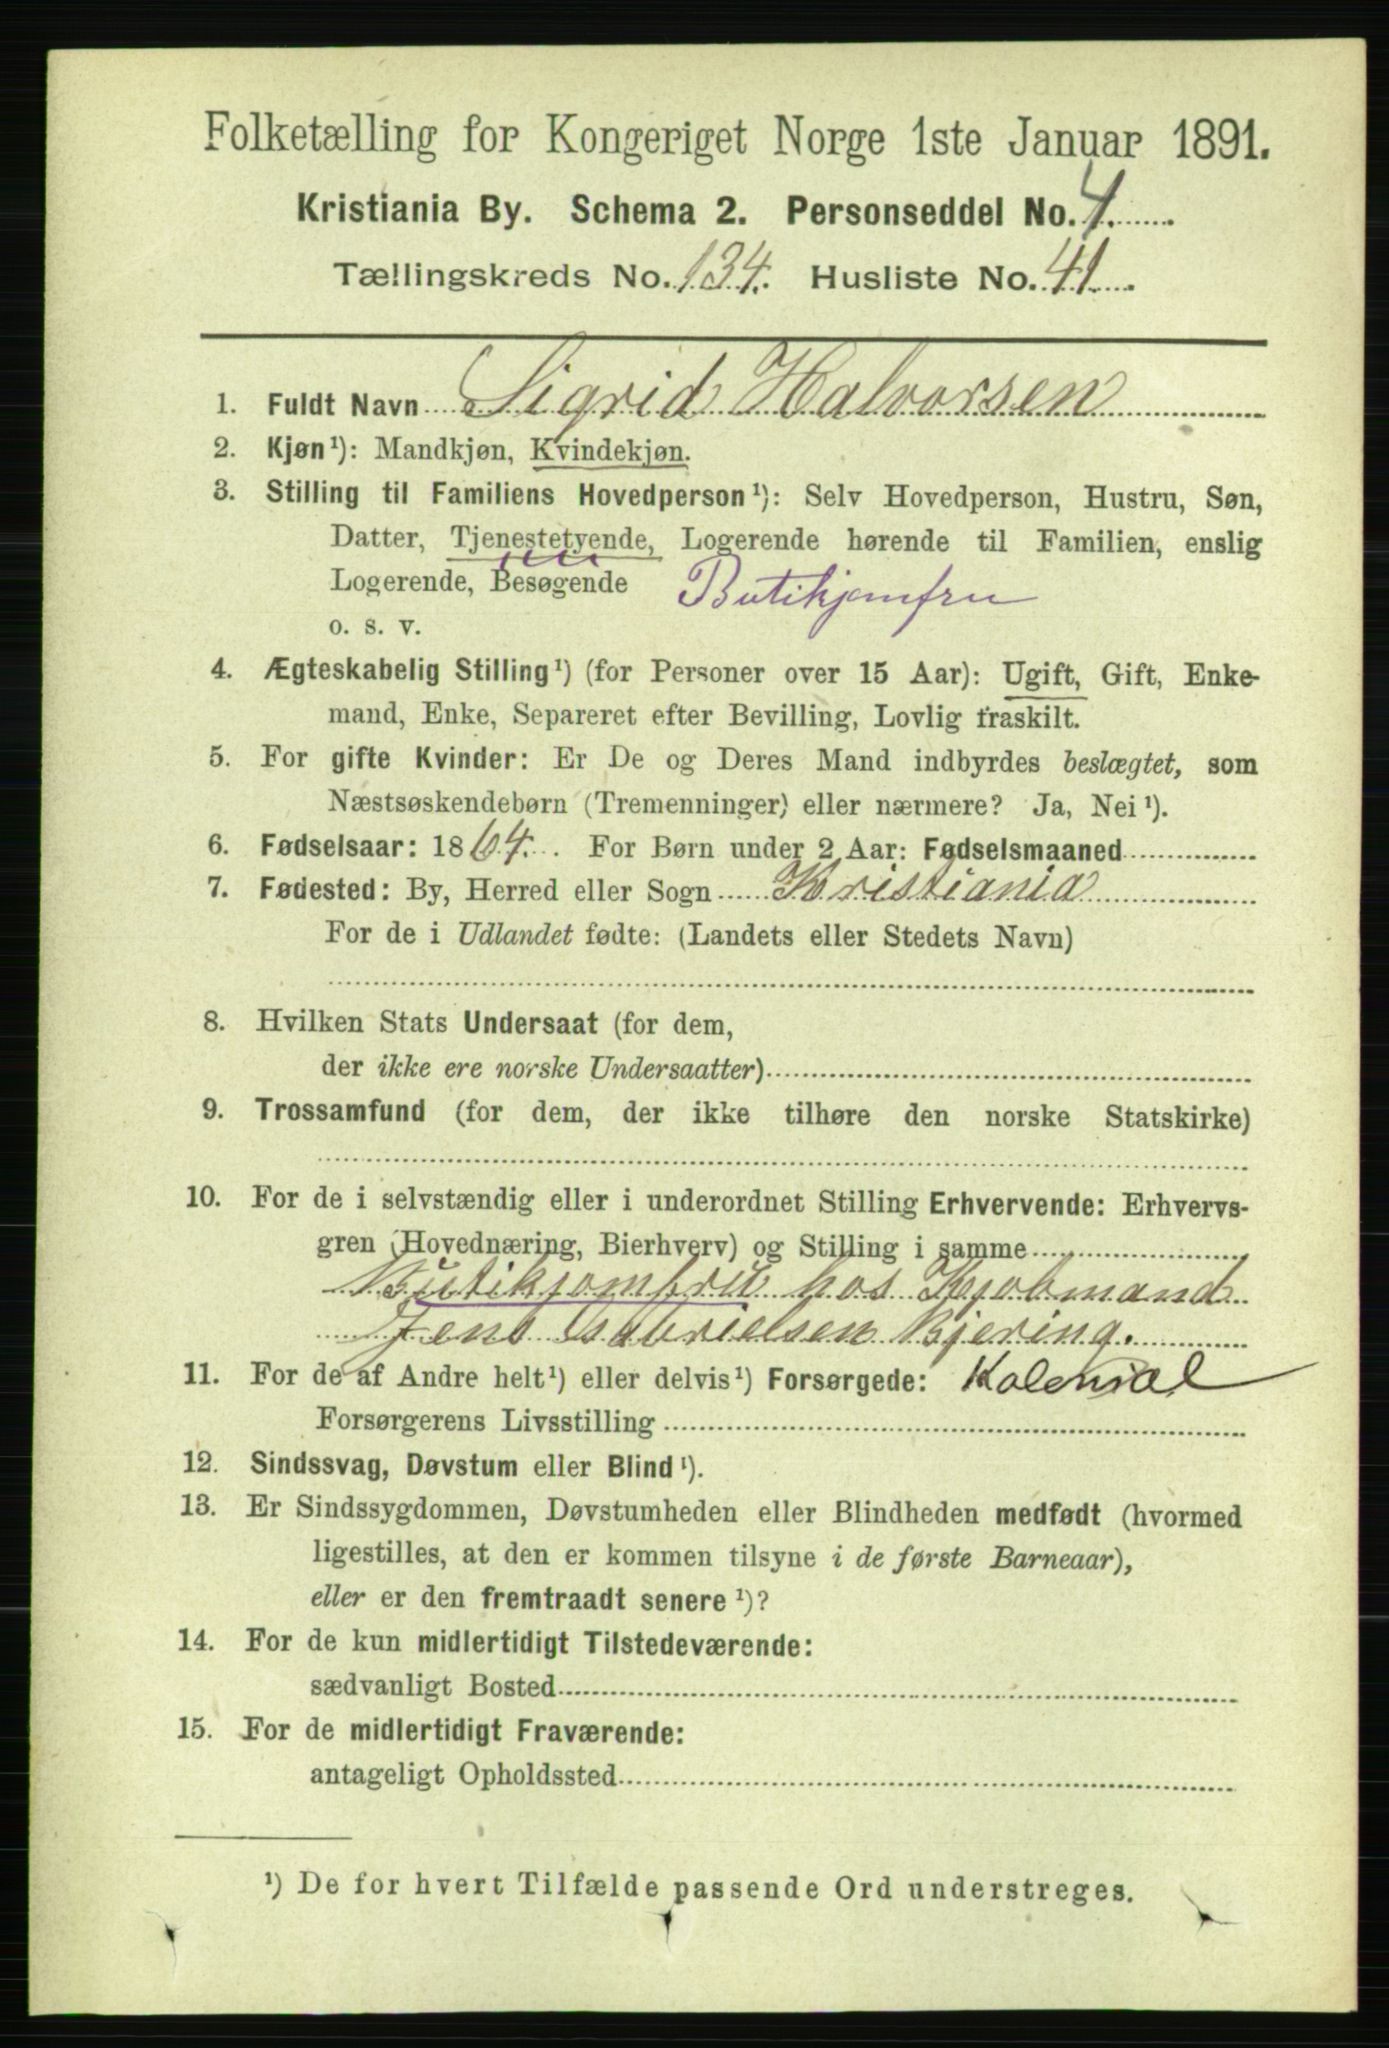 Folketælling for Kongeriget Norge 1ste Januar 1891.
Kristiania By. Schema 2. Personseddel No. 4.
Tællingskreds No. 134. Husliste No. 41
1. Fuldt Navn Sigrid Halvorsen
2. Kjøn¹): Mandkjøn, Kvindekjøn.
3. Stilling til Familiens Hovedperson¹): Selv Hovedperson, Hustru, Søn,
Datter, Tjenestetyende, Logerende hørende til Familien, enslig
Logerende, Besøgende Butikjomfru
o. s. v.
4. Ægteskabelig Stilling¹) (for Personer over 15 Aar): Ugift, Gift, Enke-
mand, Enke, Separeret efter Bevilling, Lovlig fraskilt.
5. For gifte Kvinder: Er De og Deres Mand indbyrdes beslægtet, som
Næstsøskendebørn (Tremenninger) eller nærmere? Ja, Nei¹).
6. Fødselsaar: 1864. For Børn under 2 Aar: Fødselsmaaned
7. Fødested: By, Herred eller Sogn Kristiania
For de i Udlandet fødte: (Landets eller Stedets Navn)
8. Hvilken Stats Undersaat (for dem,
der ikke ere norske Undersaatter)
9. Trossamfund (for dem, der ikke tilhøre den norske Statskirke)
10. For de i selvstændig eller i underordnet Stilling Erhvervende: Erhvervs-
gren (Hovednæring, Bierhverv) og Stilling i samme
Butikjomfru hos Kjøbmand
Jens Gabrielsen Bjering.
11. For de af Andre helt¹) eller delvis¹) Forsørgede: Kolonial
Forsørgerens Livsstilling
12. Sindssvag, Døvstum eller Blind¹).
13. Er Sindssygdommen, Døvstumheden eller Blindheden medfødt (hvormed
ligestilles, at den er kommen tilsyne i de første Barneaar),
eller er den fremtraadt senere¹)?
14. For de kun midlertidigt Tilstedeværende:
sædvanligt Bosted
15. For de midlertidigt Fraværende:
antageligt Opholdssted
¹) De for hvert Tilfælde passende Ord understreges.